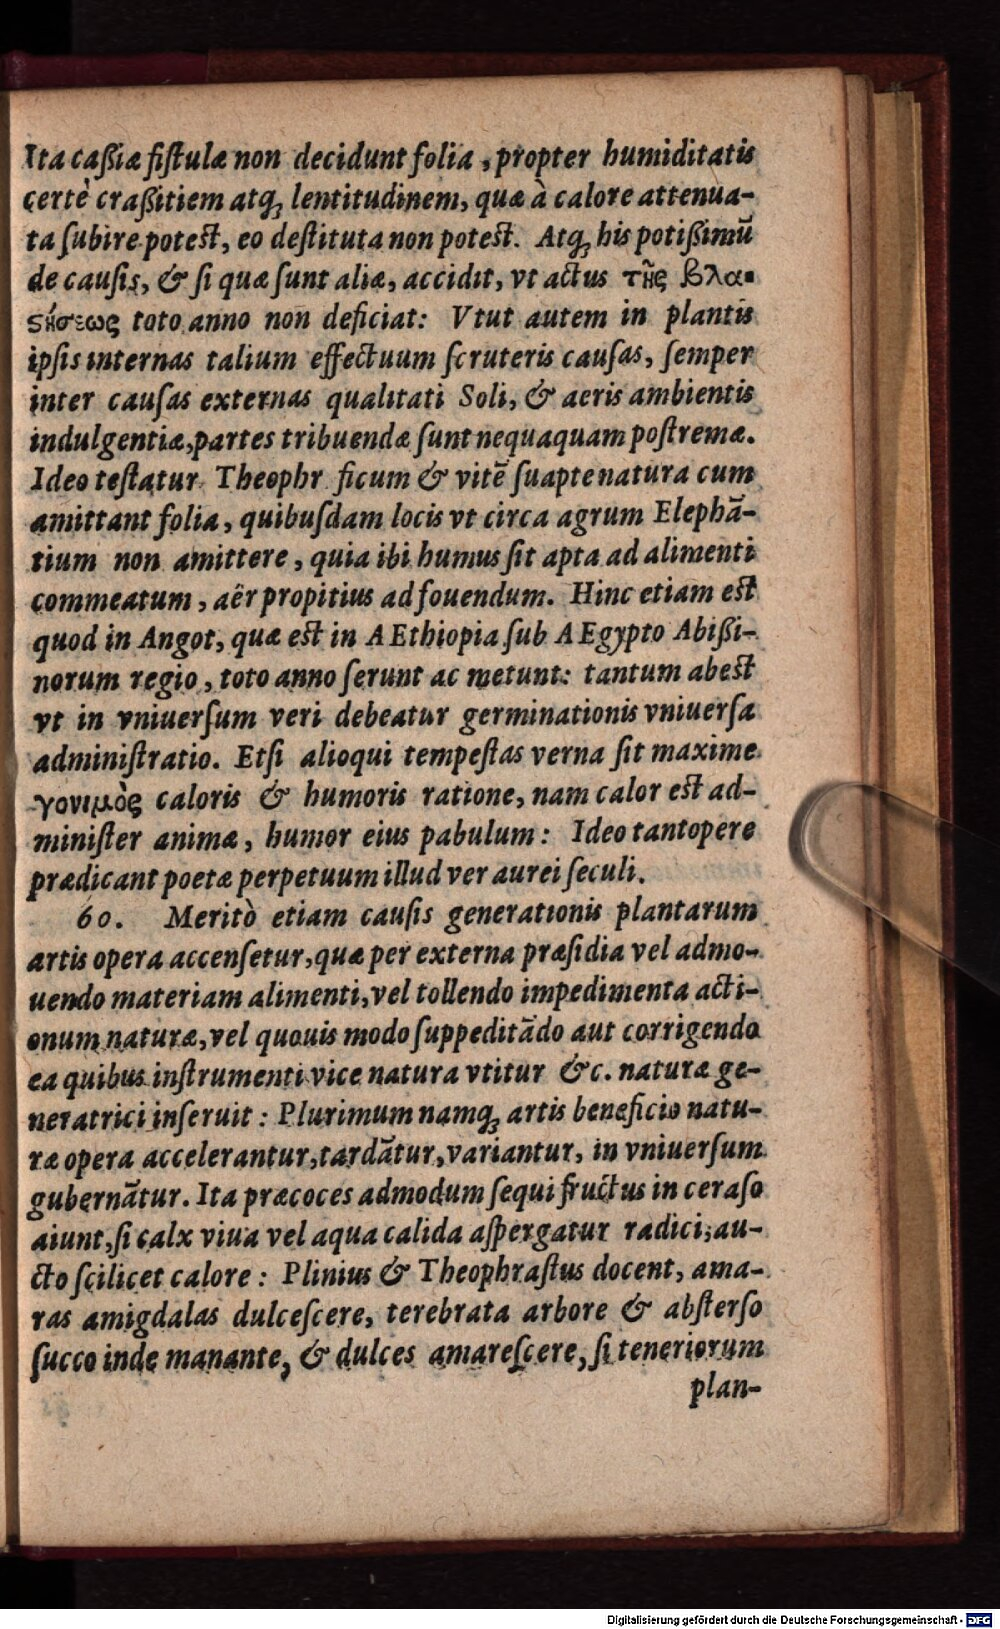 Ita caßiæ fiſtulæ non decidunt folia, propter humiditatis
certè craßitiem atq;, lentitudinem, quæ à calore attenua-
ta ſubire poteſt, eo deſtituta non poteſt. Atq; his potißimũ
de cauſis, & ſi quæ ſunt aliæ, accidit, vt actus τῆς βλα-
ϛήσεως toto anno non deficiat: Vtut autem in plantis
ipſis internas talium effectuum ſcruteris cauſas, ſemper
inter cauſas externas qualitati Soli, & aeris ambientis
indulgentiæ, partes tribuendæ ſunt nequaquam poſtremæ.
Ideo teſtatur Theophr ficum & vitẽ ſuapte natura cum
amittant folia, quibuſdam locis vt circa agrum Elephã-
tium non amittere, quia ibi humus ſit apta ad alimenti
commeatum, aër propitius ad fouendum. Hinc etiam eſt
quod in Angot, quæ eſt in AEthiopia ſub AEgypto Abißi-
norum regio, toto anno ſerunt ac metunt: tantum abeſt
vt in vniuerſum veri debeatur germinationis vniuerſa
adminiſtratio. Etſi alioqui tempeſtas verna ſit maxime
γονιμὸς caloris & humoris ratione, nam calor eſt ad-
miniſter animæ, humor eius pabulum: Ideo tantopere
prædicant poetæ perpetuum illud ver aurei ſeculi.
60. Meritò etiam cauſis generationis plantarum
artis opera accenſetur, quæ per externa præſidia vel admo-
uendo materiam alimenti, vel tollendo impedimenta acti-
onum naturæ, vel quouis modo ſuppeditãdo aut corrigendo
ea quibus inſtrumenti vice natura vtitur &c. naturæ ge-
neratrici inſeruit: Plurimum namq; artis beneficio natu-
ræ opera accelerantur, tardãtur, variantur, in vniuerſum
gubernãtur. Ita præcoces admodum ſequi fructus in ceraſo
aiunt, ſi calx viua vel aqua calida aſpergatur radici, au-
cto ſcilicet calore: Plinius & Theophraſtus docent, ama-
ras amigdalas dulceſcere, terebrata arbore & abſterſo
ſucco inde manante, & dulces amareſcere, ſi teneriorum
plan-
Digitalisierung gefördert durch die Deutsche Forschungsgemeinschaft - DFG